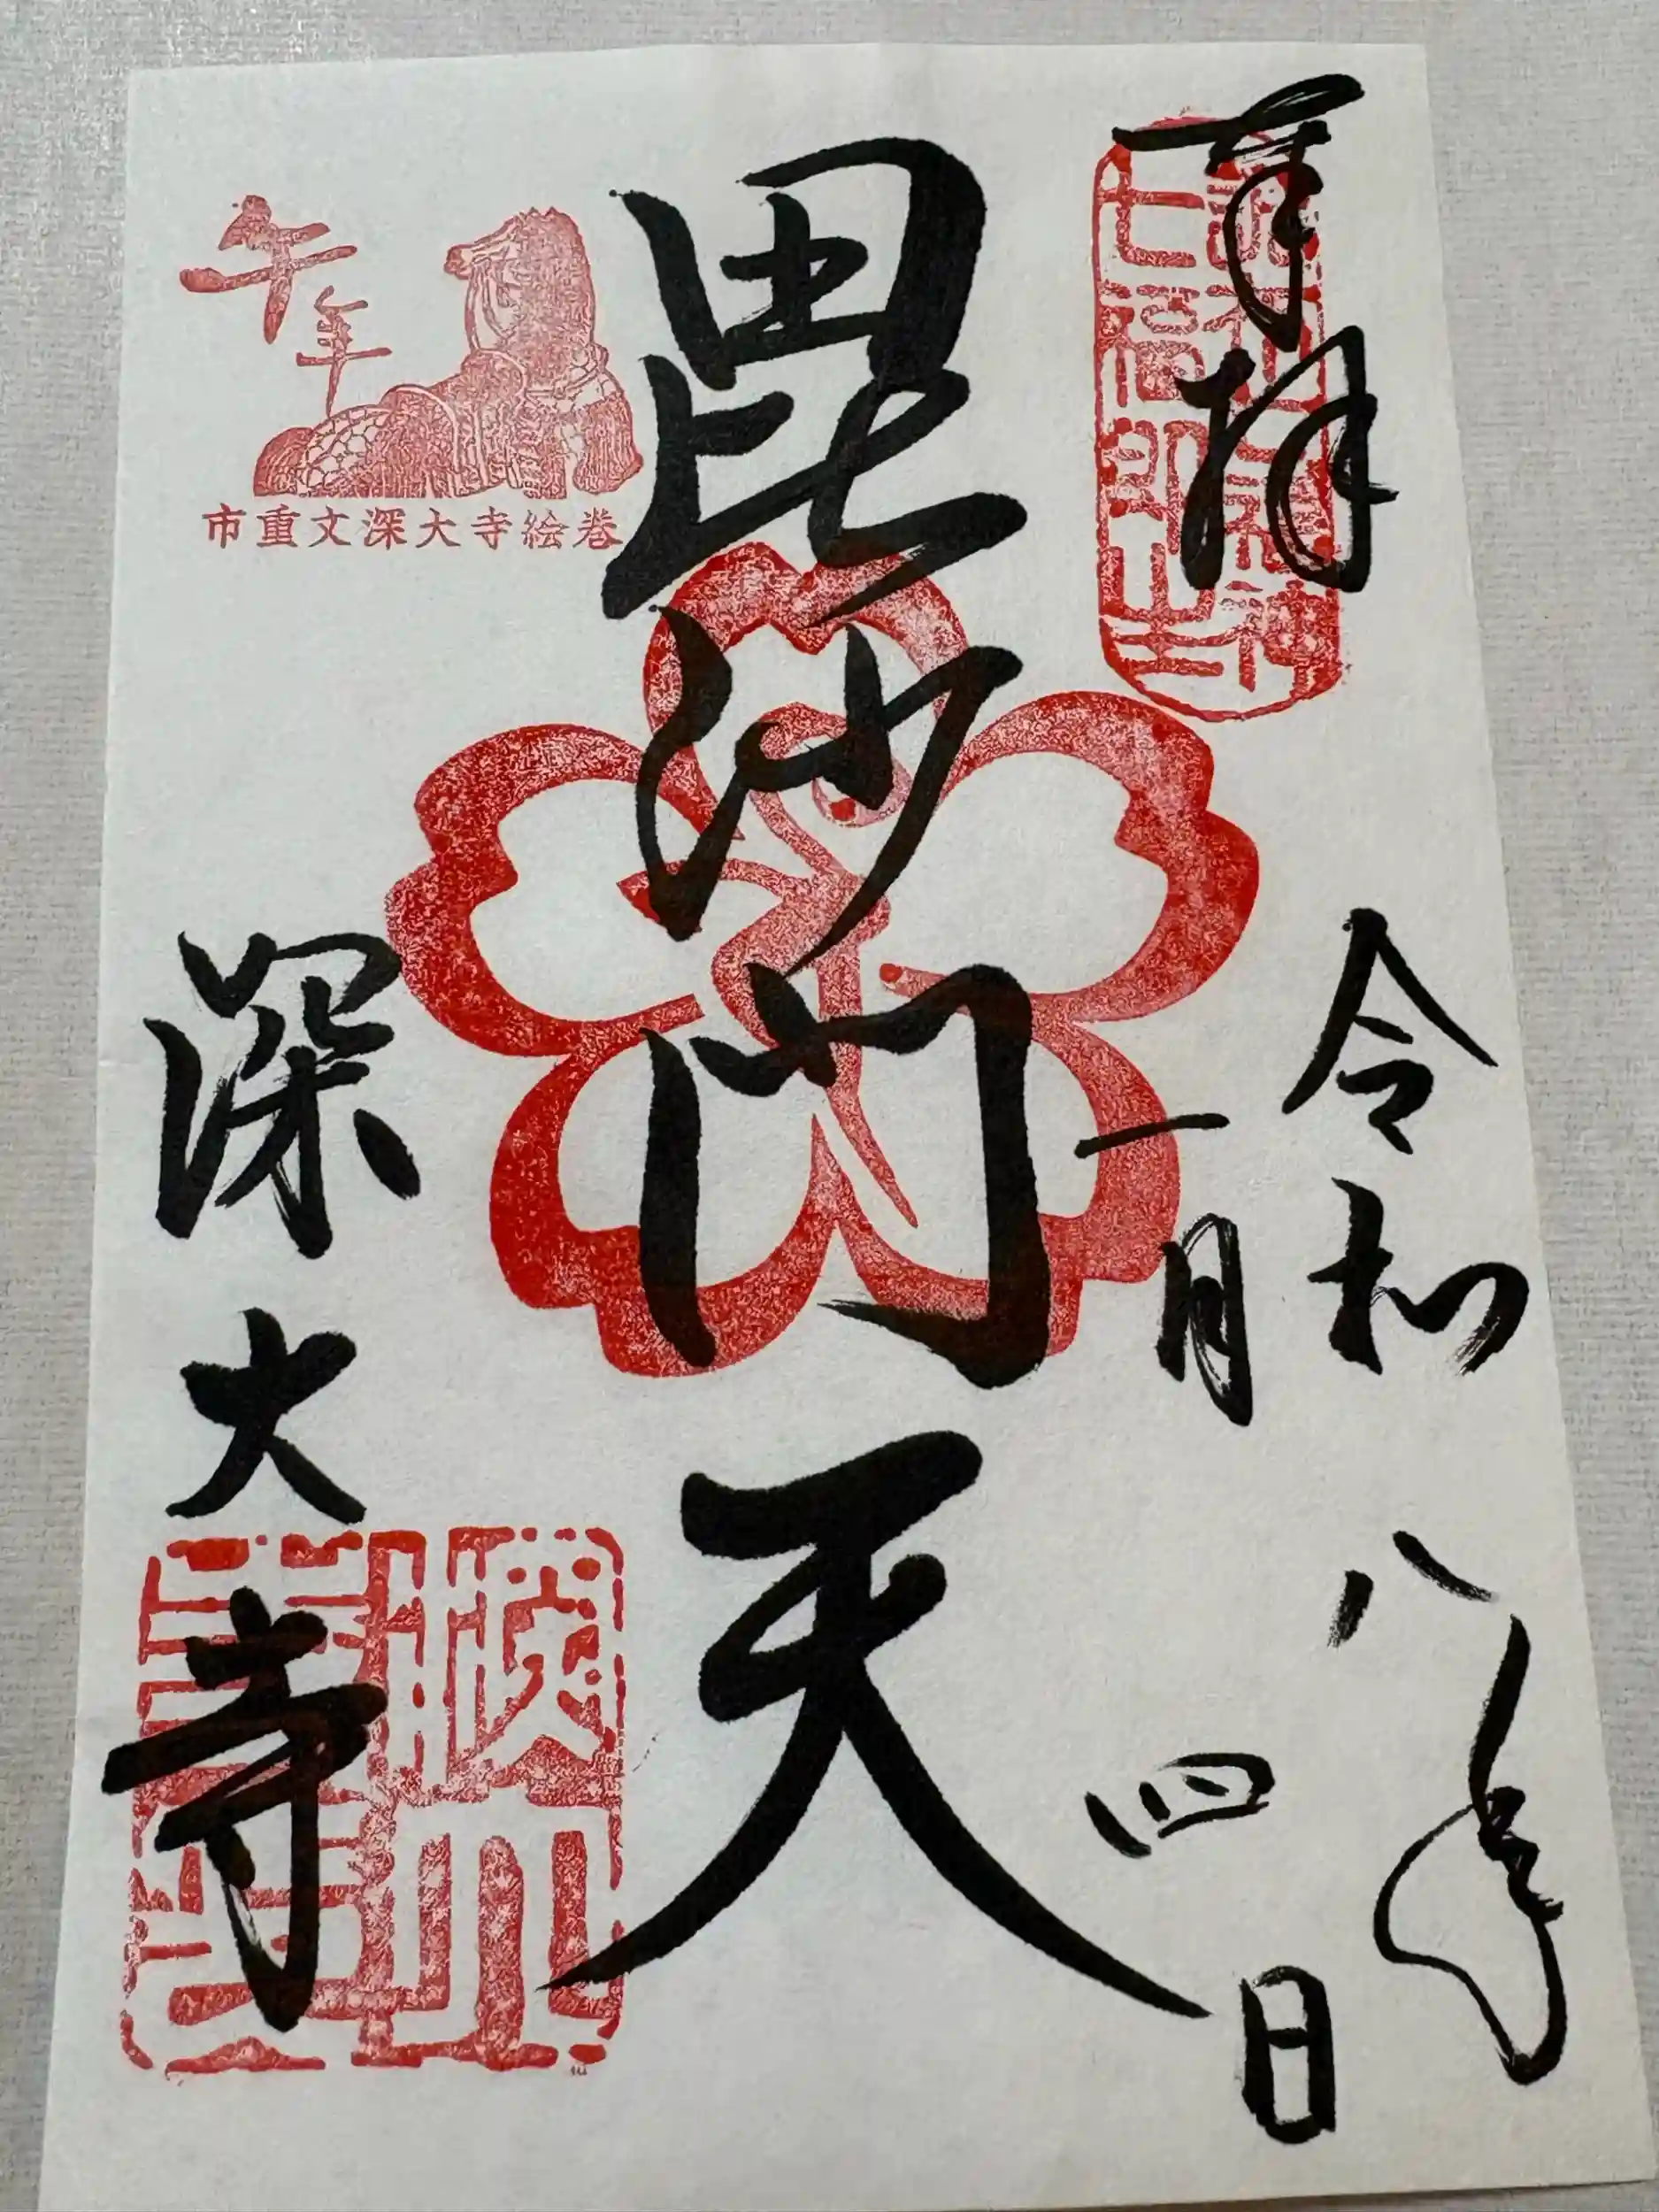 奉拝
調布七福神
七福即生
令和八年
一月四日
毘沙門天
午年
市重文深大寺絵巻
深大寺